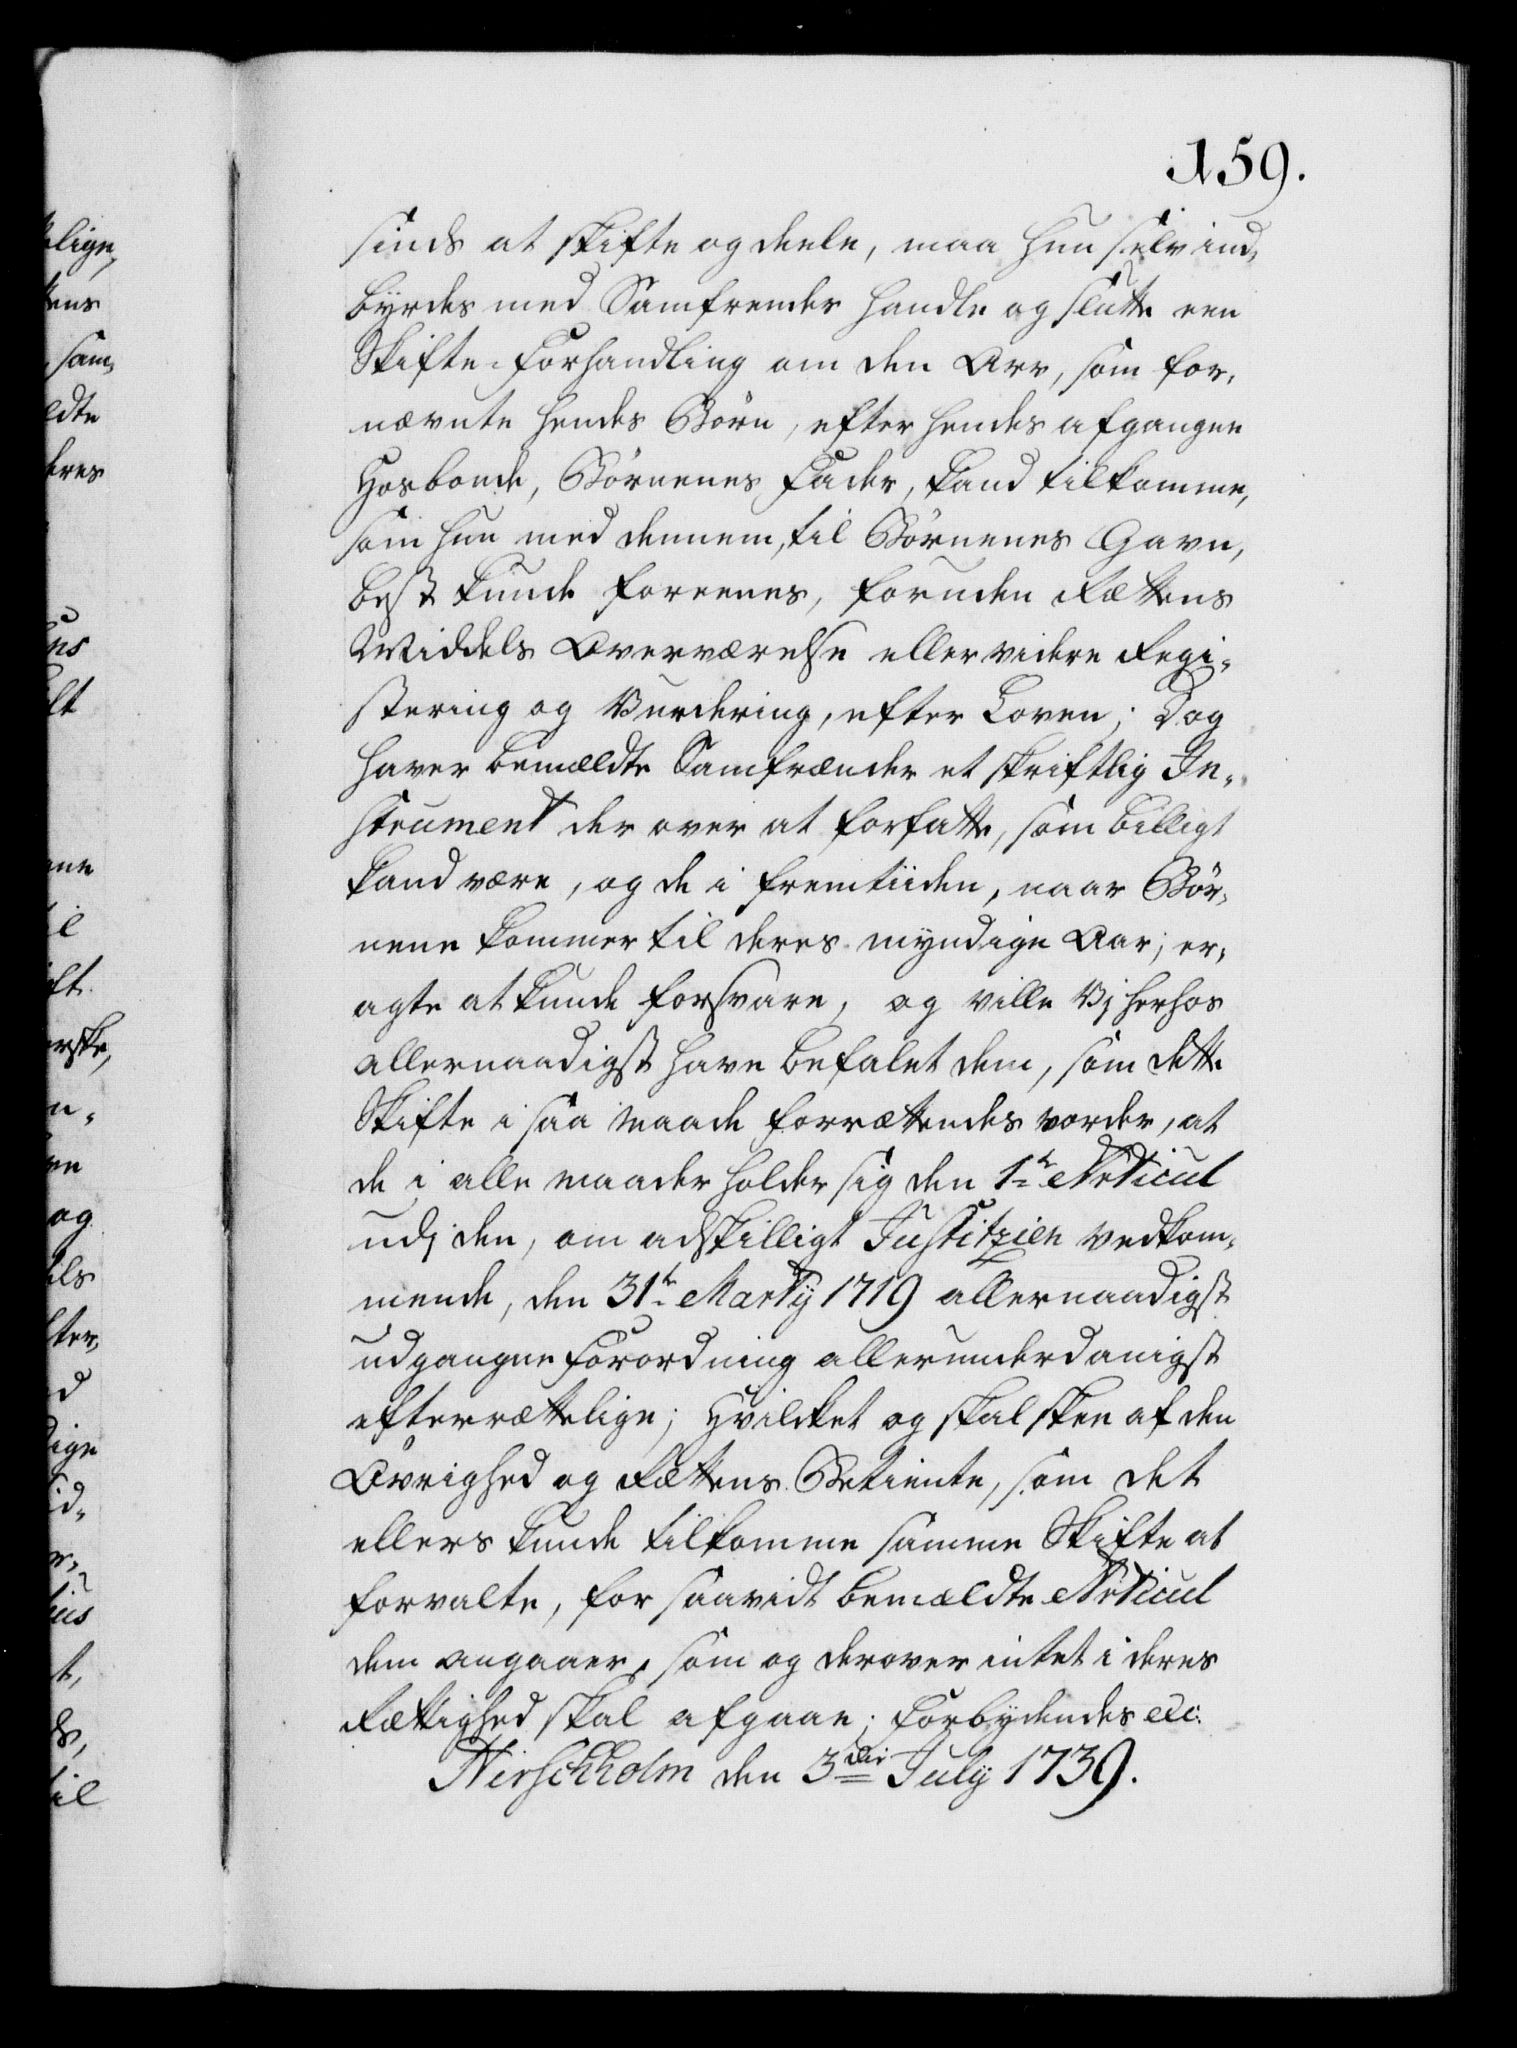 159.
sinds at skifte og deele, maa hun selv ind,
byrdes med Samfrender handle og slutte een
Skifte-Forhandling om den Arv, som for,
nævnte hendes Børn, efter hendes afgangne
Hosbonde, Børnenes Fader, kand tilkomme,
som hun med dennem, til Børnenes Gavn,
best kunde foreenes, foruden Rettens
Middels Overværelse eller videre Regi,
stering og Vurdering, efter Loven; Dog
haver bemældte Samfrænder et skriftlig In,
strument der over at forfatte, som billigt
kand være, og de i fremtiiden, naar Bør,
nene kommer til deres myndige Aar, er,
agte at kunde forsvare, og ville Vj herhos
allernaadigst have befalet dem, som dette
Skifte i saa maade forrættendes vorder, at
de i alle maader holder sig den 1te Articul
udj den, om adskilligt Justitzien vedkom,
mende, den 31te Martij 1719 allernaadigst
udgangne Forordning allerunderdanigst
efterrættelige; Hvilcket og skal skee af den
Øvrighed og Rættens Betiente, som det
ellers kunde tilkomme samme Skifte at
forvalte, for saavidt bemældte Articul
dem angaaer, som og derover intet i deres
Rættighed skal afgaae; Forbydendes etc:
Hirschholm den 3die July 1739.